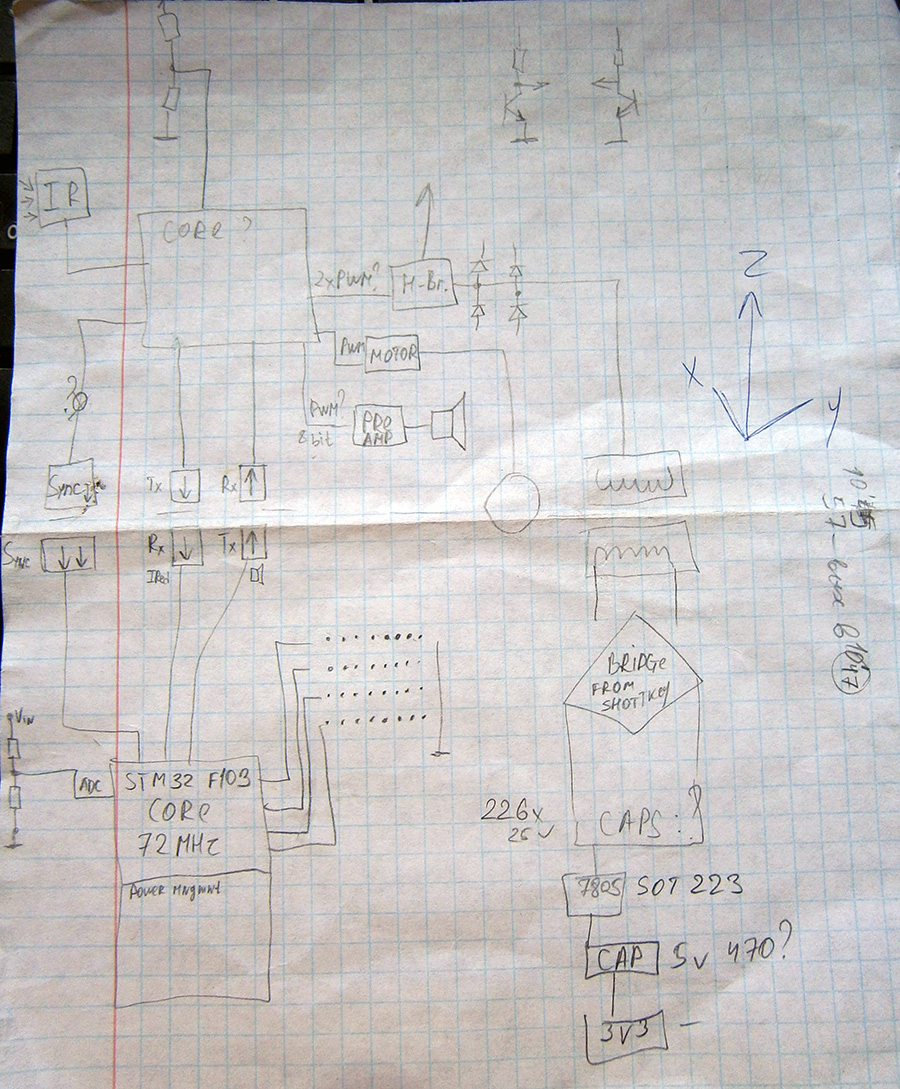 IR
CORE ?
2xPWM?
H-Br.
PWM
MOTOR
PWM?
8 bit
PRE
AMP
Z
X
Y
Sync
Tx
Rx
Sync
Rx
Tx
IRed
BRIDGE
FROM
SHOTTKEY
VIN
ADC
STM32 F103
CORE
72 MHz
Power Mngmnt
226x
25v
CAPS:?
7805
SOT 223
CAP
5v 470?
3V3 –